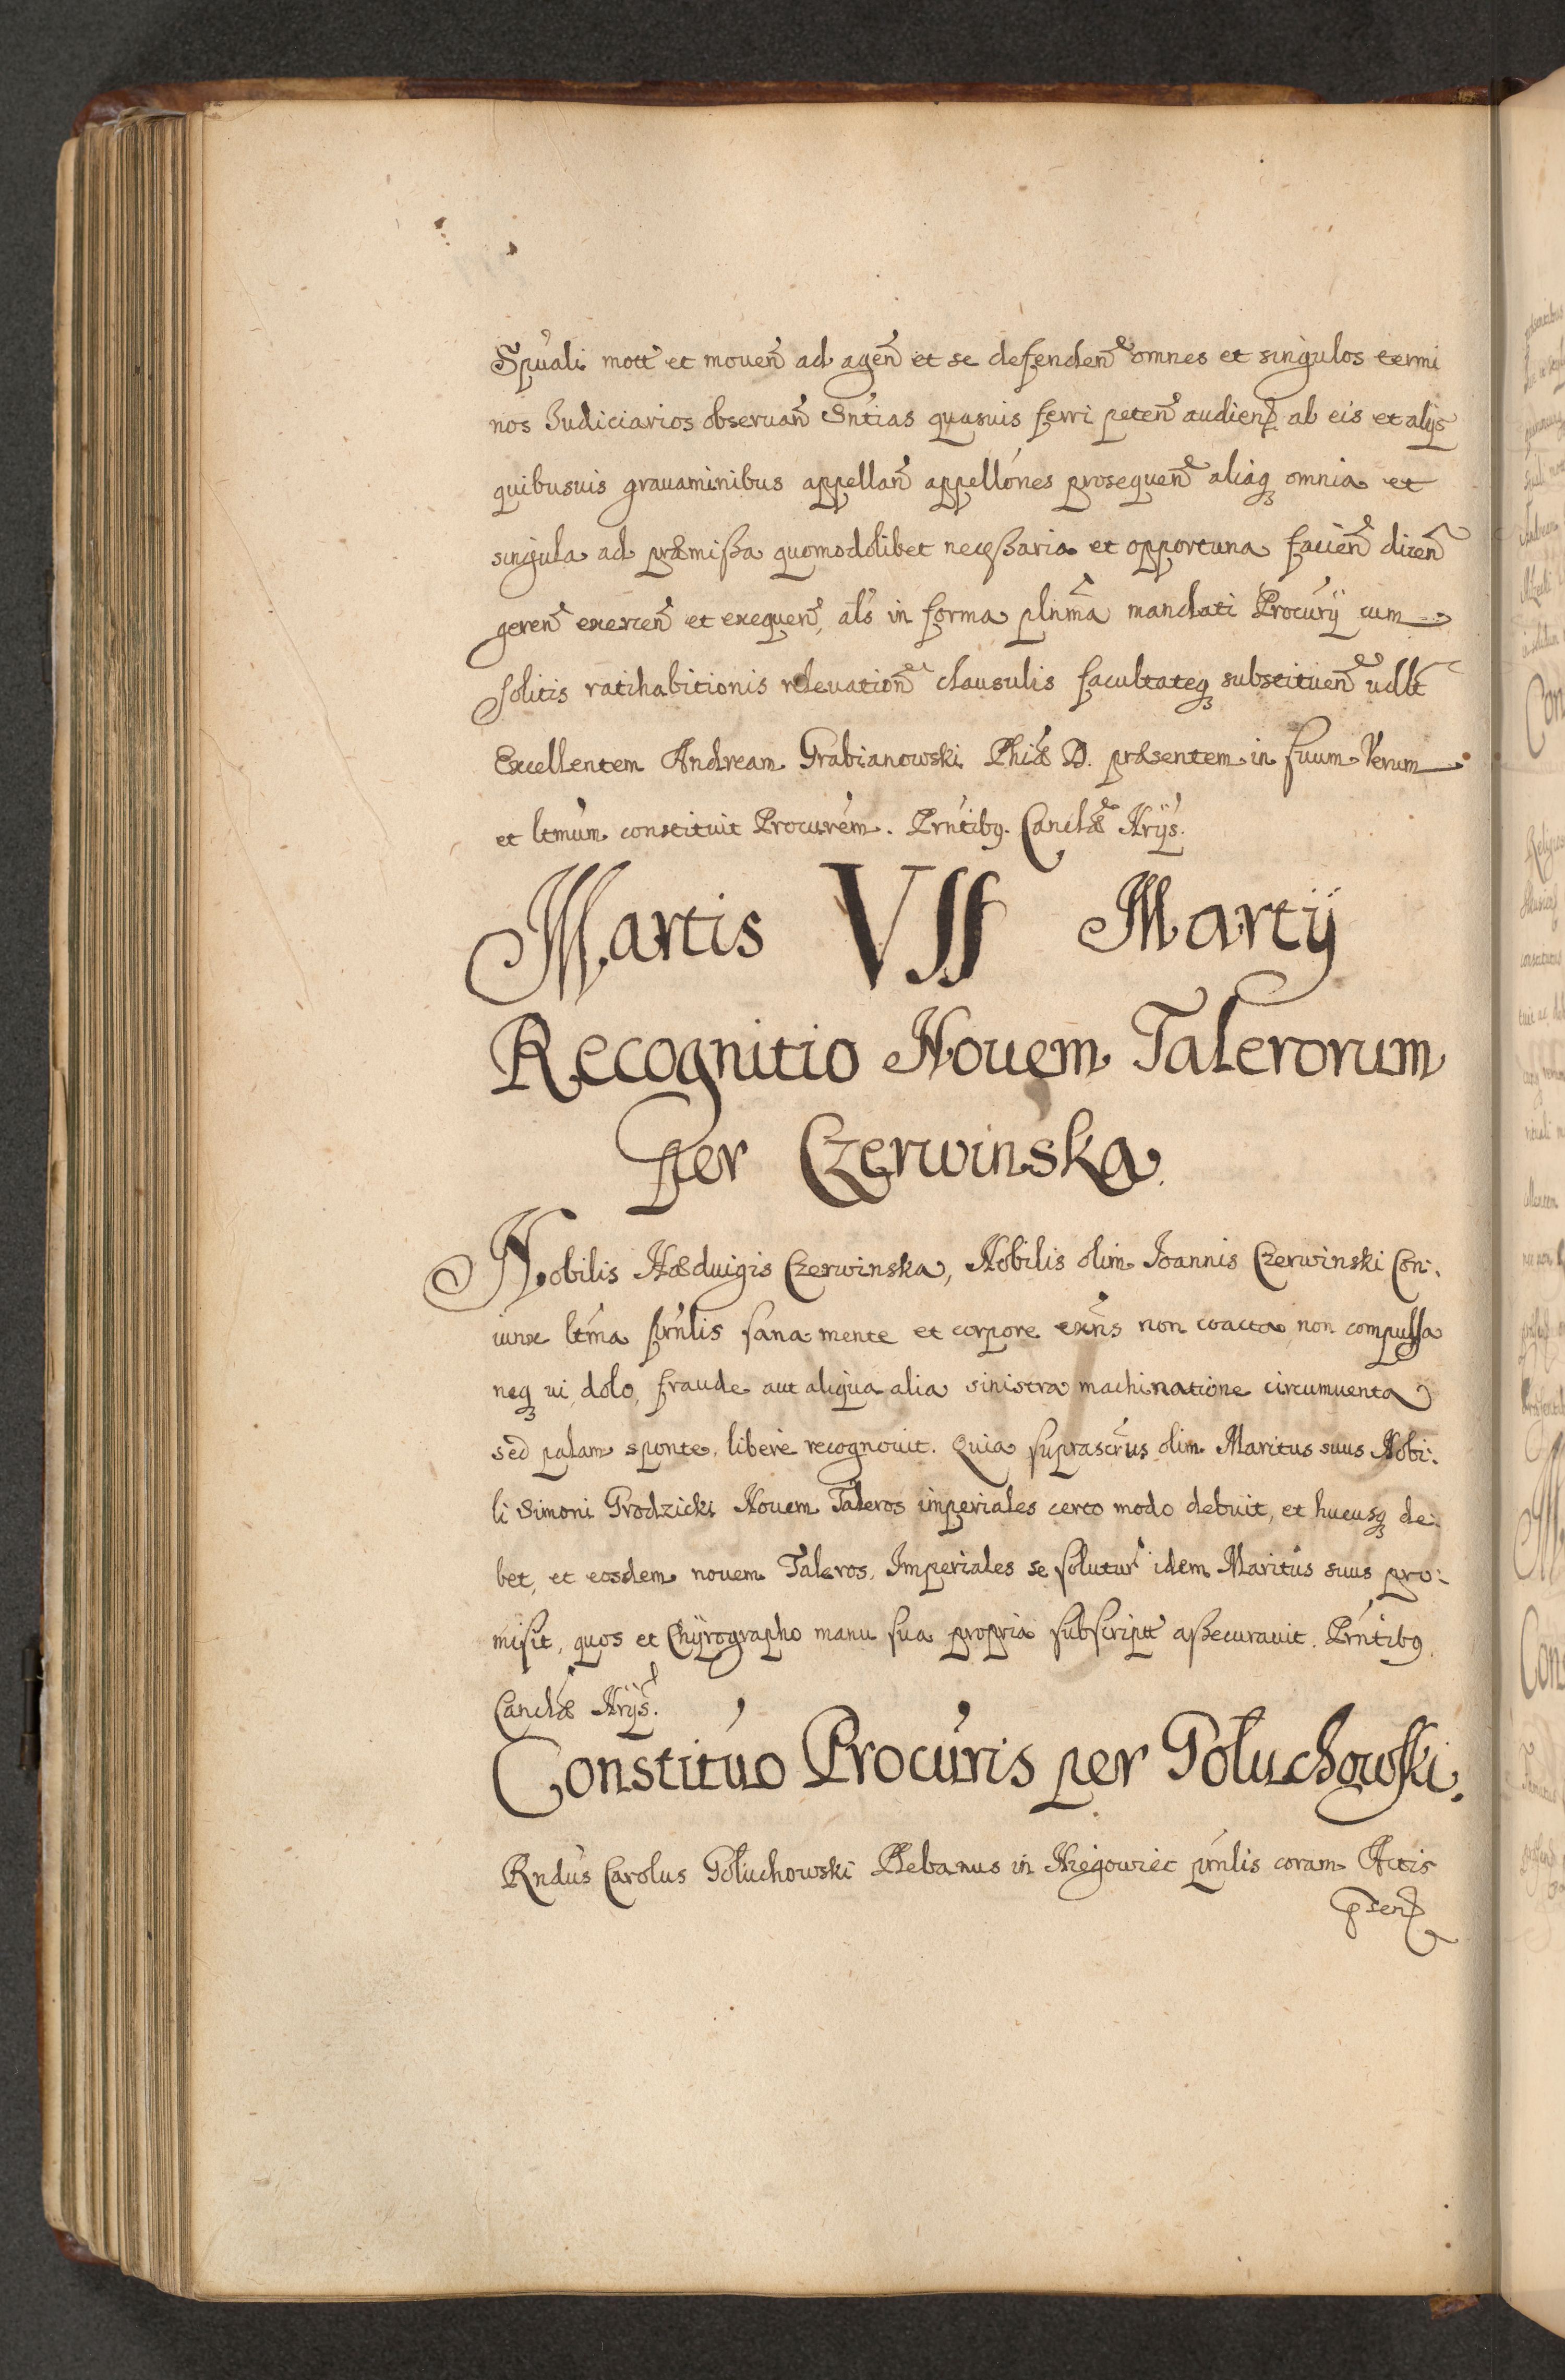 Spúali mott et mouen̄ ad agen̄ et se defenden̄ omnes et singulos termi
nos Iudiciarios obseruan̄ Sńtias quasuis ferri peten̄ audien̄ ab eis et alijs
quibusuis grauaminibus appellan̄ appellónes prosequen̄ aliaq; omnia et
singula ad præmißa quomodolibet neceßaria et opportuna facien̄ dicen̄
geren̄ exercen̄ et exequen̄, als in forma plnma mandati Procúrij cum
solitis ratihabitionis releuation̄ clausulis facultateq; substituen̄ udlt
Excellentem Andream Grabianowski Phiæ D. præsentem in suum Verum
et ltmum constituit Procurém. Prńtibq. Canclæ Nrijs.
Martis VII Martij
Recognitio Nouem Talerorum
per Czerwinska.
Nobilis Hæduigis Czerwinska, Nobilis olim Ioannis Czerwinski Con:
iunx ltma prńlis sana mente et corpore exn̄s non coacta, non compulsa
neq; ui, dolo, fraude aut aliqua alia sinistra machinatione circumuenta
sed palam sponte, libere recognouit. Quia suprascrus olim Maritus suus Nobi:
li Simoni Grodzicki Nouem Taleros imperiales certo modo debuit, et hucusq; de:
bet, et eosdem nouem Taleros Imperiales se solutur idem Maritus suus pro:
misit, quos et Chyrographo manu sua propria subscriptt aßecurauit. Prńtibq
Canclæ Nrijs.
Constitúo Procúris per Goluchowski.
Rndus Carolus Goluchowski Plebanus in Niegowiec prńlis coram Actis